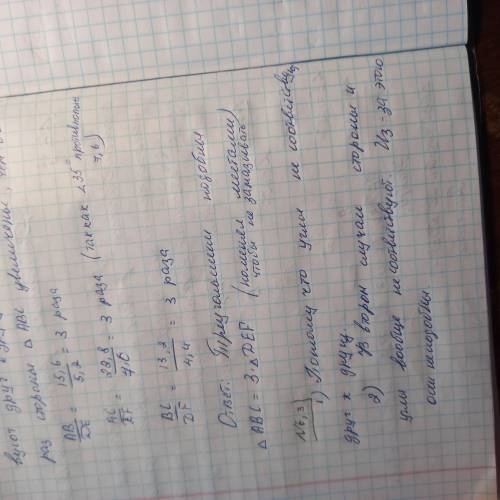 вуют друг другу
раз стороны △ ABC увеличены, чем
AB/DE = 15,6/5,2 = 3 раза
AC/EF = 22,8/7,6 = 3 раза (так как ∠35° противополож 7,6)
BC/DF = 13,2/4,4 = 3 раза
Ответ: Треугольники подобны
△ABC = 3·△DEF (поменял местами чтобы не заказывать)
№6,3
1) Потому что углы не соответствуют
друг к другу.
2) Во втором случаи стороны и
углы вообще не соответствуют. Из-за этого
они неподобны